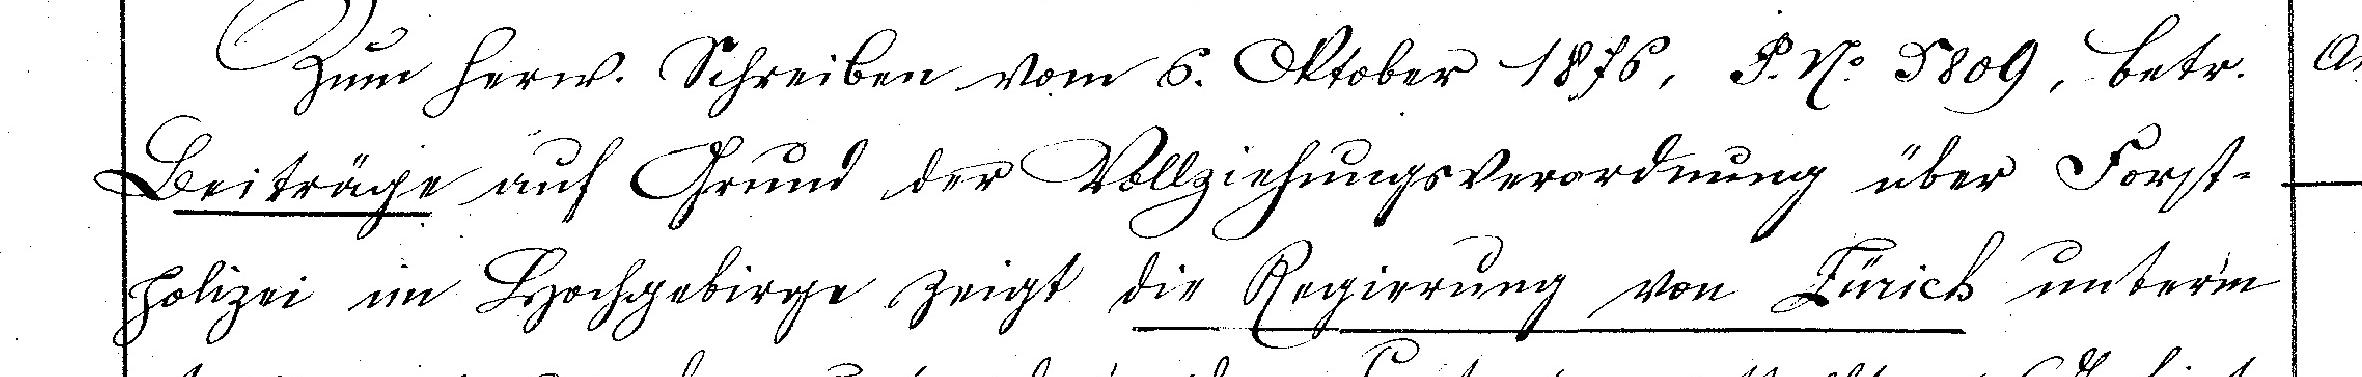 Zum herw. Schreiben vom 6. Oktober 1876, P. No. 5809, betr.
Beiträge auf Grund der Vollziehungsverordnung über Forst-
polizei im Hochgebirge zeigt die Regierung von Zürich unterm